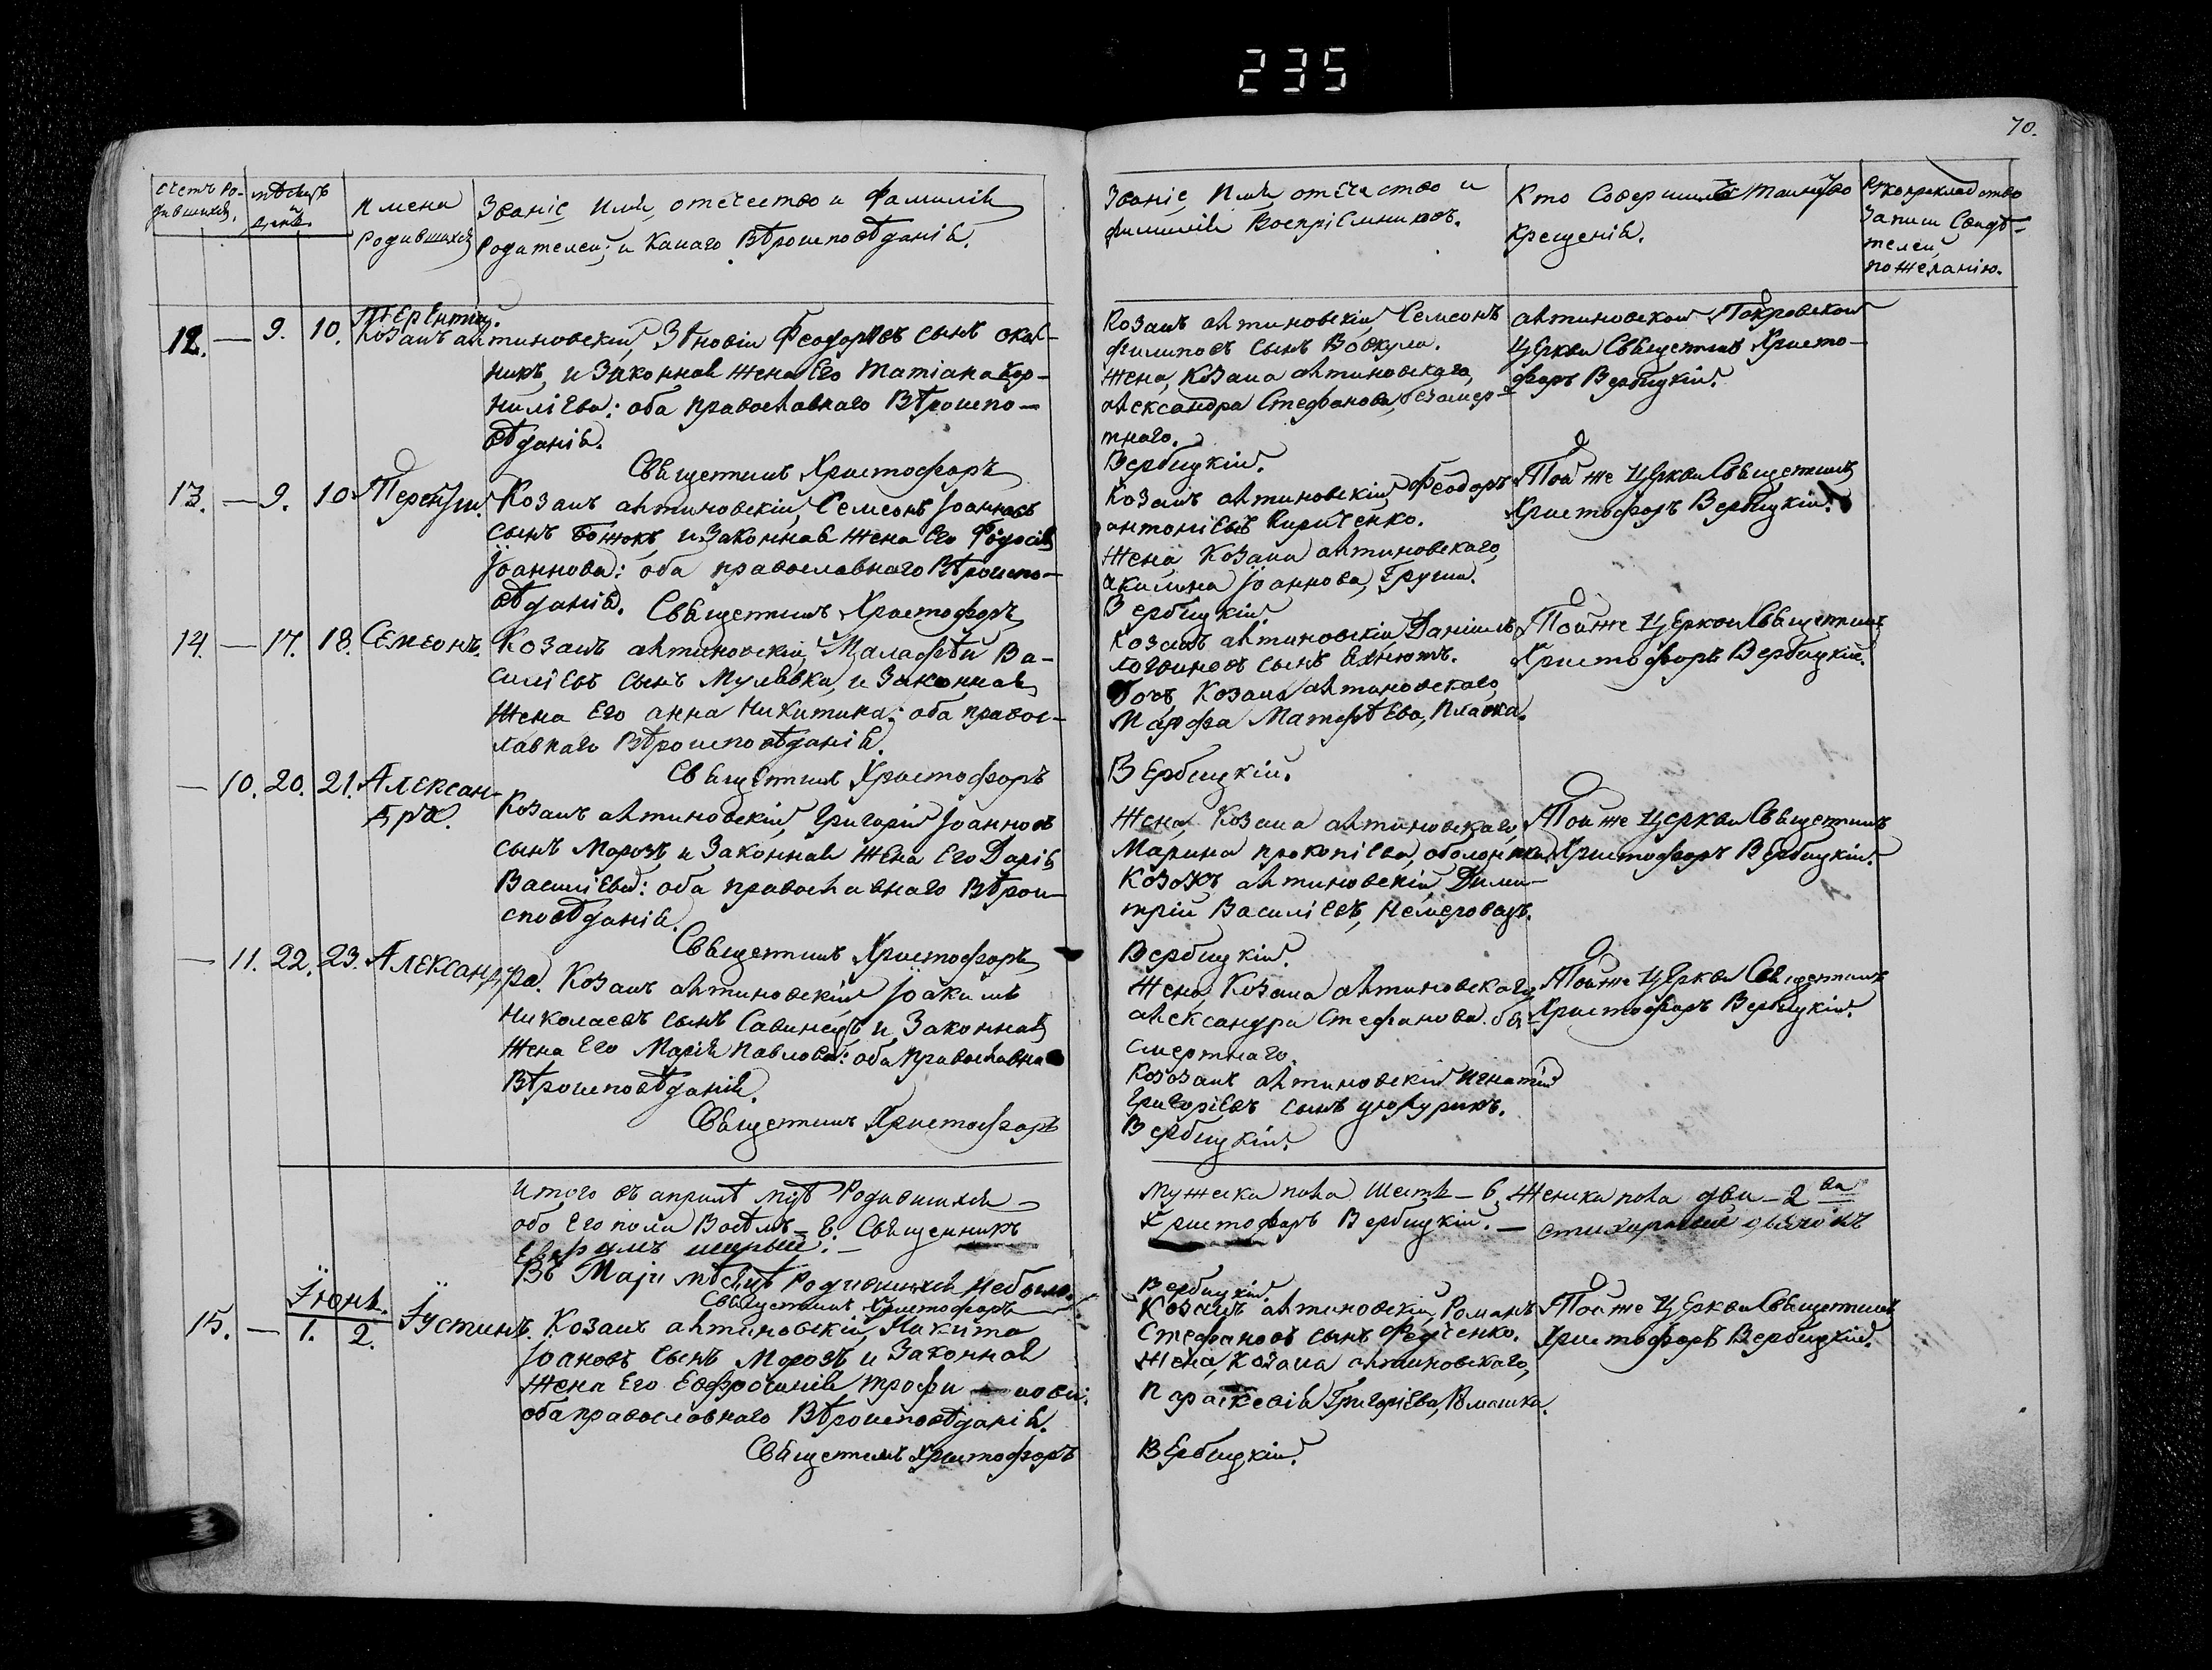 235
70.
Счетъ Ро-
дившихся,
мѣсяцъ
и
день.
Имена
Родившихся
Званіе, Имя, отечество и Фамилія
Родителей; и Какаго Вѣроисповѣданія.
Званіе, Имя, отечество и
фамилія Воспріемниковъ.
Кто Совершилъ Таинство
Крещенія.
Записи Свидѣ-
телей
по желанію.
12. — 9. 10. Терентій.
Козакъ алтиновскій, Зѣновій Феодоровъ сынъ
никъ, и Законная жена Его Татіана Кор-
ниліева: оба православнаго Вѣроиспо-
вѣданія.
Священникъ Христофоръ
Козакъ алтиновскій, Семеонъ
филиповъ сынъ Вовкула.
Жена, Козака алтиновскаго,
александра Стефанова, безсмер-
тнаго.
Вербицкій.
алтиновской Покровской
Церкви Священникъ Христо-
форъ Вербицкій.
13. — 9. 10. Терентій.
Козакъ алтиновскій, Семеонъ Іоанновъ
сынъ Божокъ, и Законная жена Его Феодосія
Іоаннова: оба православнаго Вѣроиспо-
вѣданія. Священникъ Христофоръ
Козакъ алтиновскій, Феодоръ
антоніевъ Кириченко.
Жена, Козака алтиновскаго,
акилина Іоаннова, Груша.
Вербицкій.
Той же Церкви Священникъ
Христофоръ Вербицкій.
14. — 17. 18. Семеонъ.
Козакъ алтиновскій, Малафѣй Ва-
силіевъ сынъ Мулявка, и Законная
жена Его анна Никитина: оба правос-
лавнаго Вѣроисповѣданія.
Священникъ Христофоръ
Козакъ алтиновскій, Даніилъ
Логвиновъ сынъ
дочь, Козака алтиновскаго,
Марфа Матфѣева,
Вербицкій.
Той же Церкви Священникъ
Христофоръ Вербицкій.
— 10. 20. 21. Алексан-
дра.
Козакъ алтиновскій, Григорій Іоанновъ
сынъ Морозъ, и Законная жена Его Дарія
Василіева: оба православнаго Вѣрои-
сповѣданія.
Священникъ Христофоръ
Жена, Козака алтиновскаго,
Марина прокопіева,
Козакъ алтиновскій, Дими-
трій Василіевъ,
Вербицкій.
Той же Церкви Священникъ
Христофоръ Вербицкій.
— 11. 22. 23. Александра.
Козакъ алтиновскій Іоакимъ
Николаевъ сынъ Савинецъ, и Законная
жена Его Марія Павлова: оба православна
Вѣроисповѣданія.
Священникъ Христофоръ
Жена, Козака алтиновскаго,
александра Стефанова без-
смертнаго.
Козакъ алтиновскій Игнатій
Григоріевъ сынъ
Вербицкій.
Той же Церкви Священникъ
Христофоръ Вербицкій.
Итого въ априлѣ мцѣ Родившихся
обоего пола Восемъ — 8. Священникъ
Мужеска пола Шесть — 6, Женска пола два — 2
Христофоръ Вербицкій. —
Въ Маји мѣсяцѣ Родившихся небыло.
Священникъ Христофоръ
Вербицкій.
Іюнь.
15. — 1. 2. Іустинъ.
Козакъ алтиновскій, Никита
Іоановъ сынъ Морозъ, и Законная
жена Его Евфросинія
оба православнаго Вѣроисповѣданія.
Священникъ Христофоръ
Козакъ алтиновскій, Романъ
Стефановъ сынъ Федченко.
Жена, Козака алтиновскаго,
Параскевія Григоріева, Ромашка.
Вербицкій.
Той же Церкви Священникъ
Христофоръ Вербицкій.